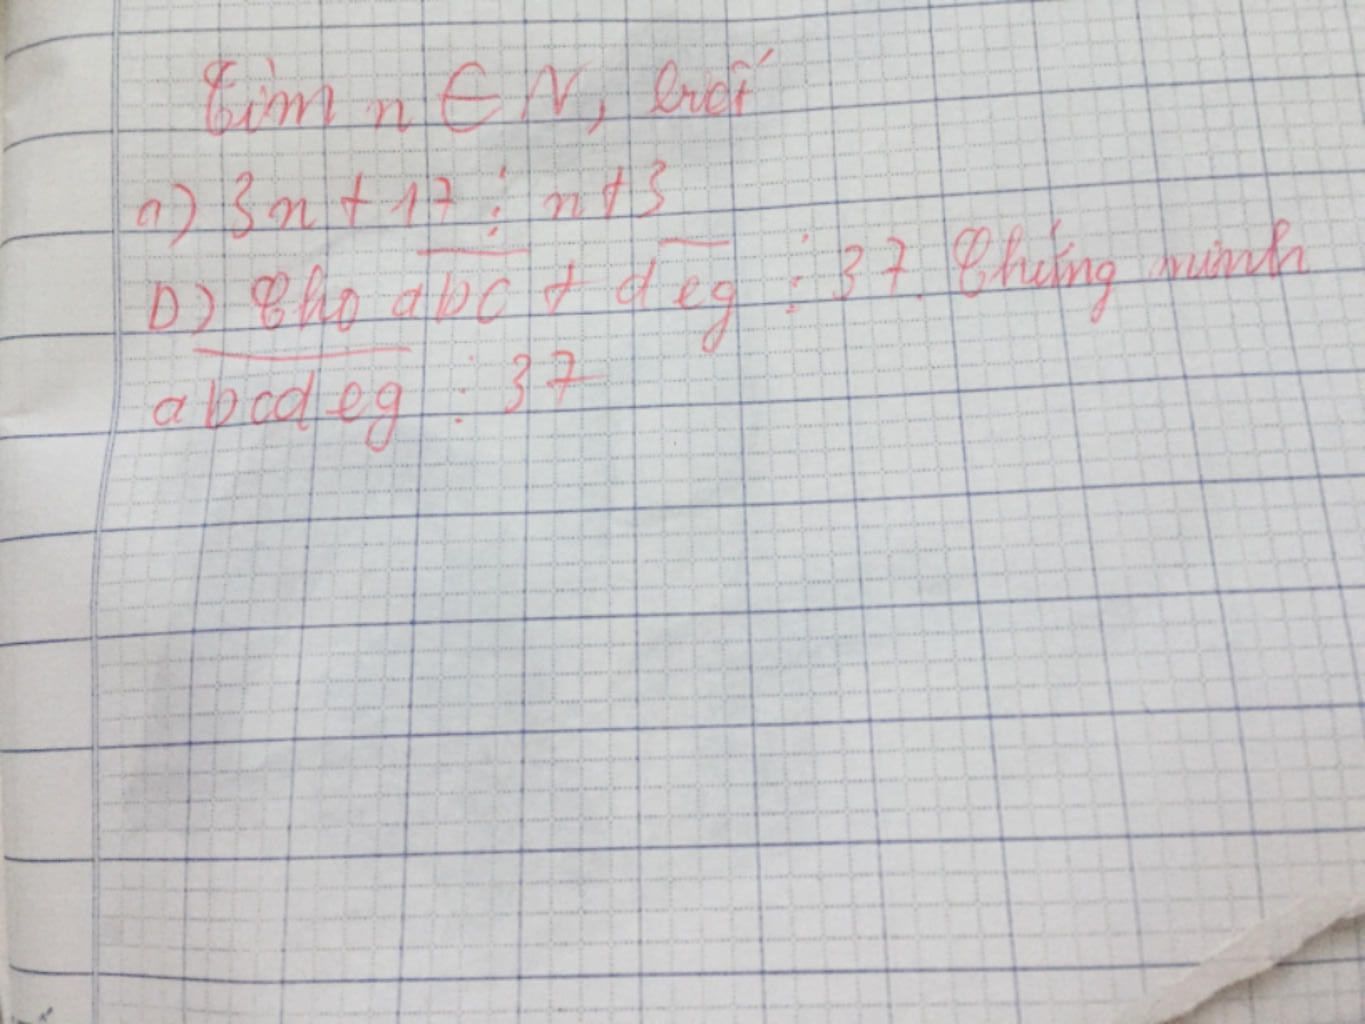 Tìm n ∈ N, biết
a) 3n + 17 ⋮ n + 3
b) Cho abc + deg ⋮ 37. Chứng minh
abcdeg ⋮ 37